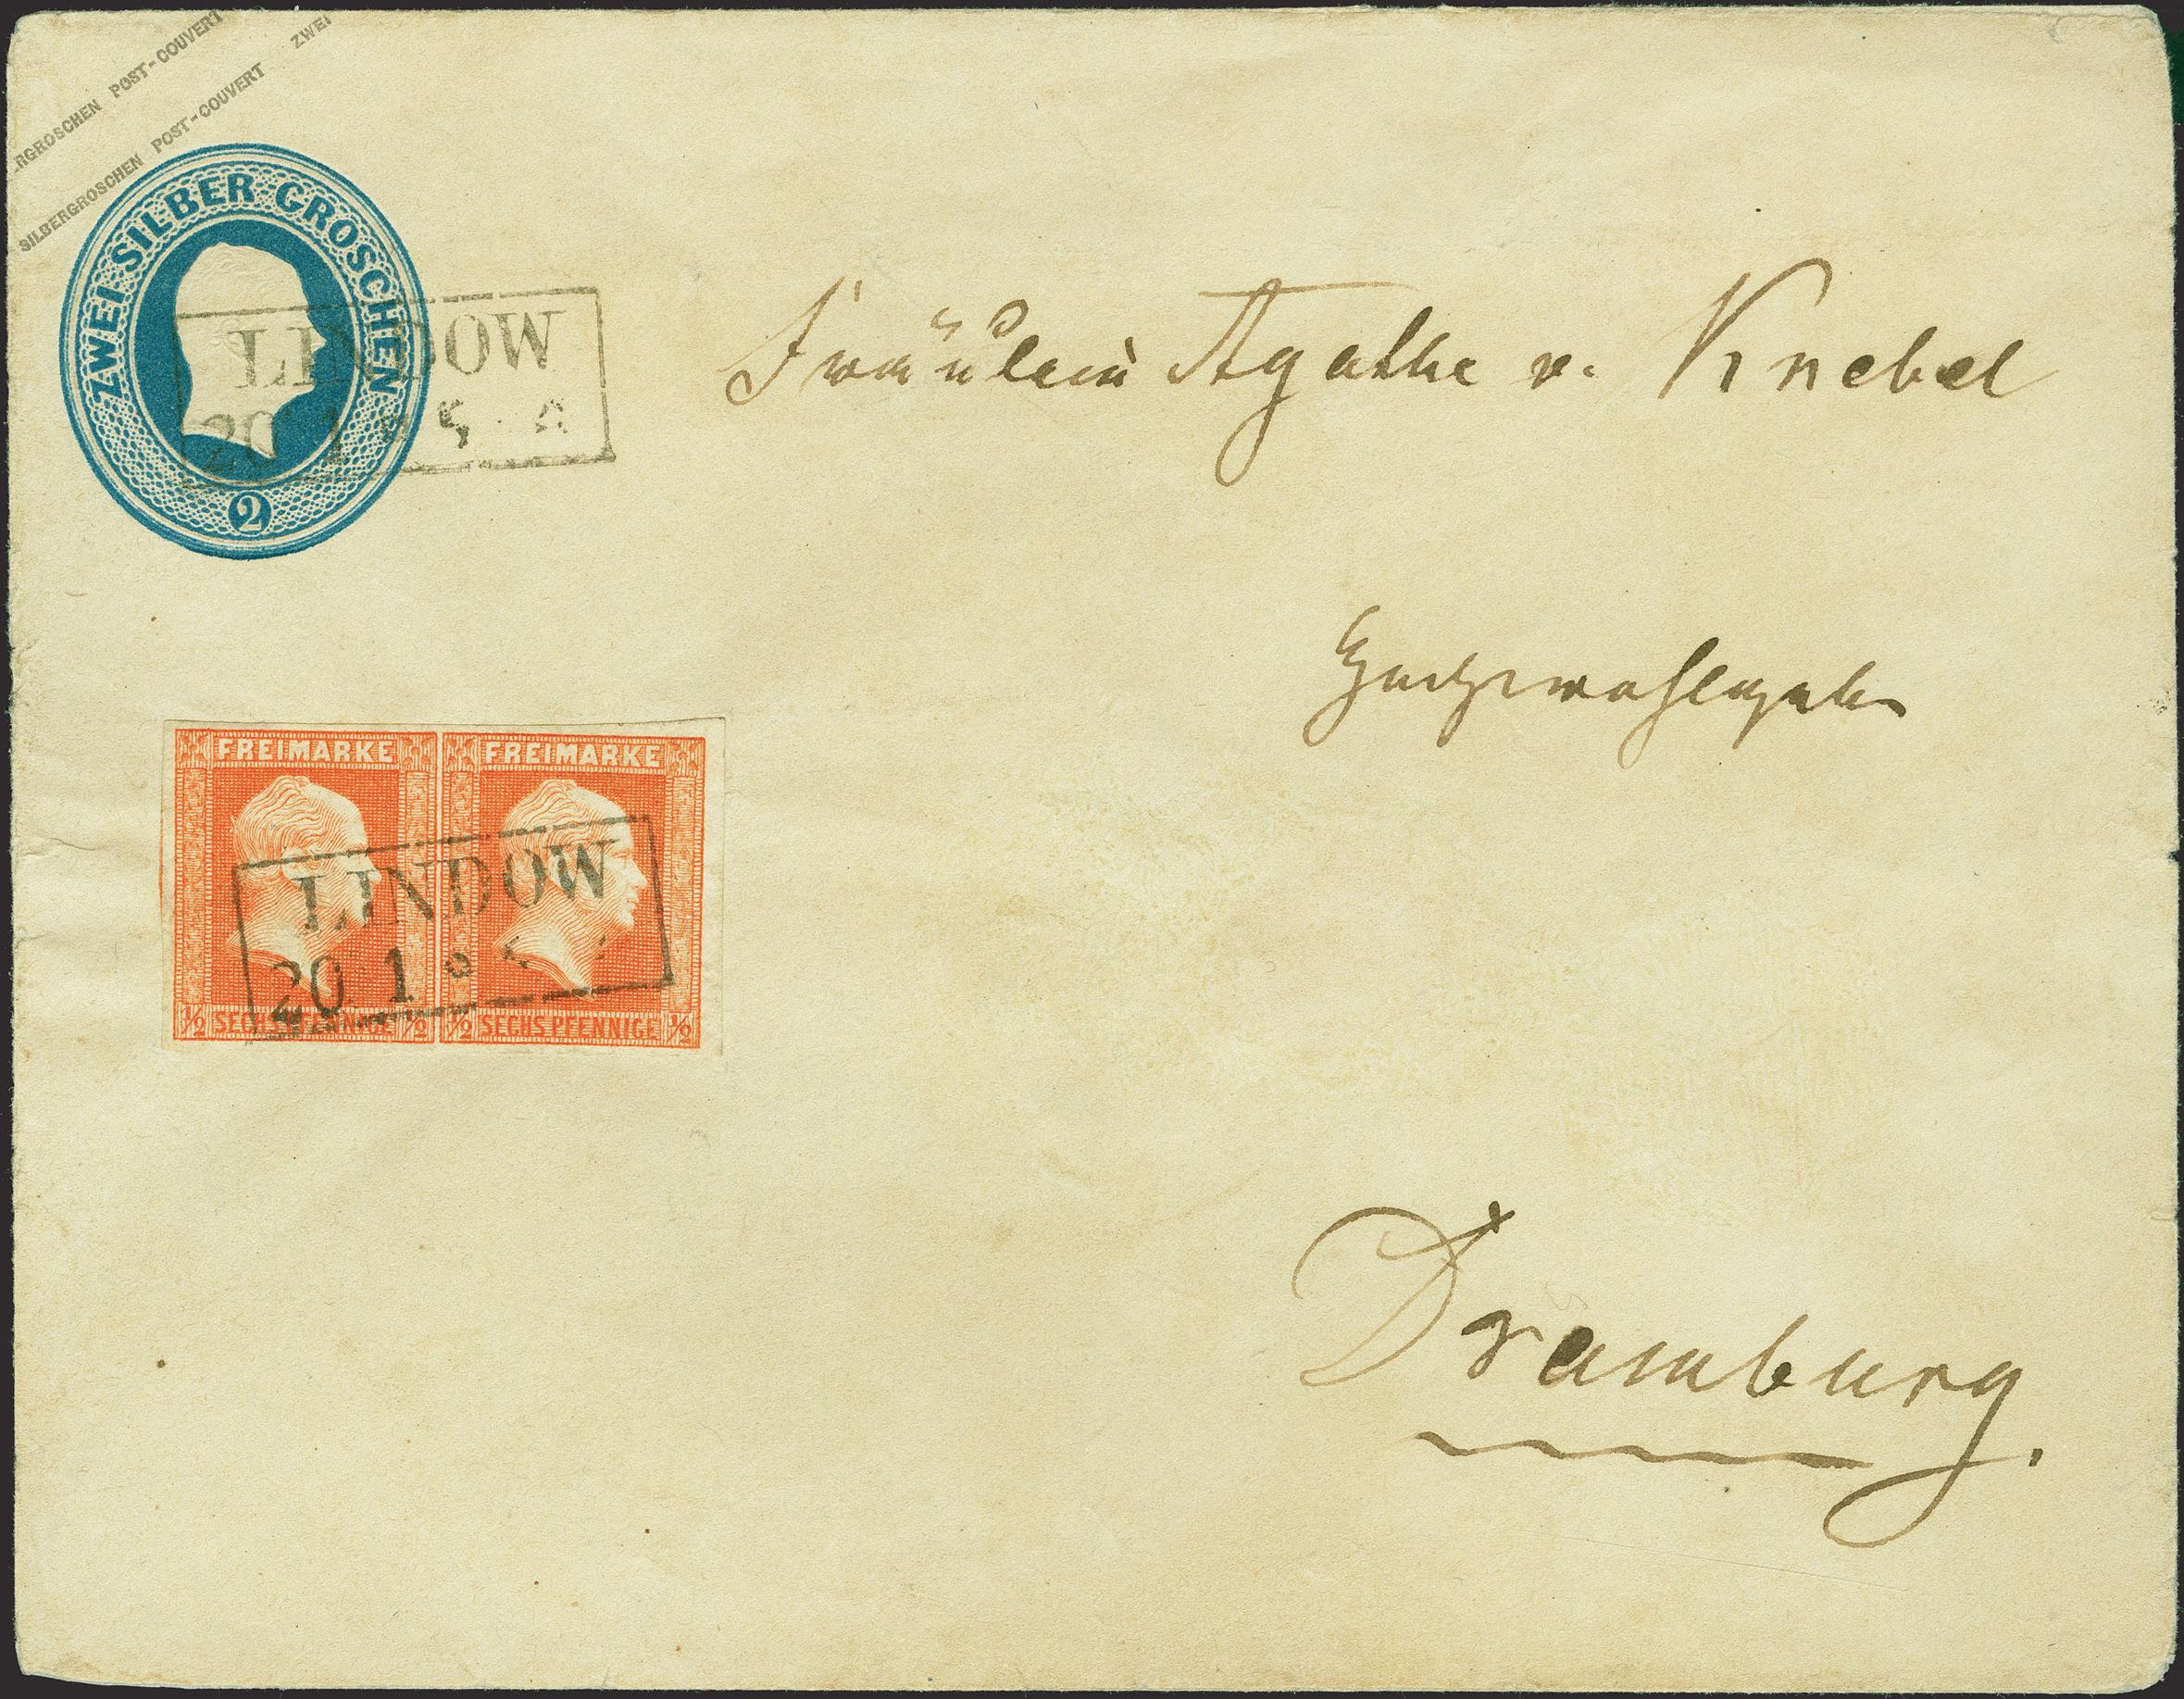 RGROSCHEN POST-COUVERT
SILBERGROSCHEN POST-COUVERT ZWEI
ZWEI SILBER GROSCHEN
2
LINDOW
20 1 * 5
Fräulein Agathe v. Knebel
FREIMARKE FREIMARKE
LINDOW
20 1 *
½ SECHS PFENNIGE ½ ½ SECHS PFENNIGE ½
Dramburg.